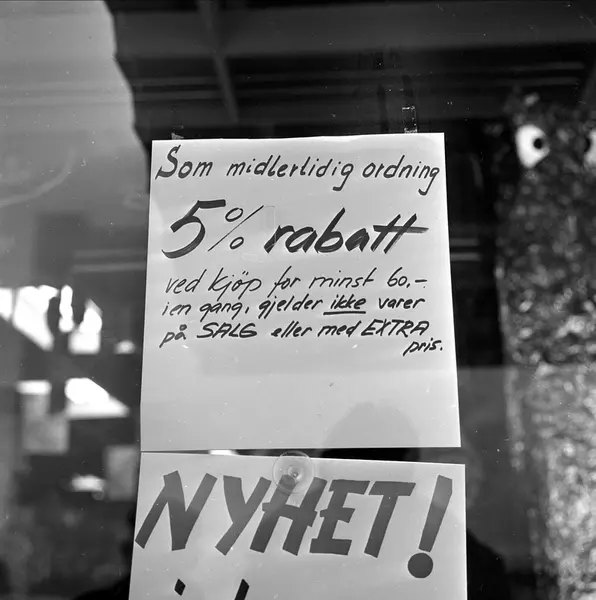 Som midlertidig ordning
5% rabatt
ved kjøp for minst 60,-
i en gang, gjelder ikke varer
på SALG eller med EXTRA
pris.
NYHET!